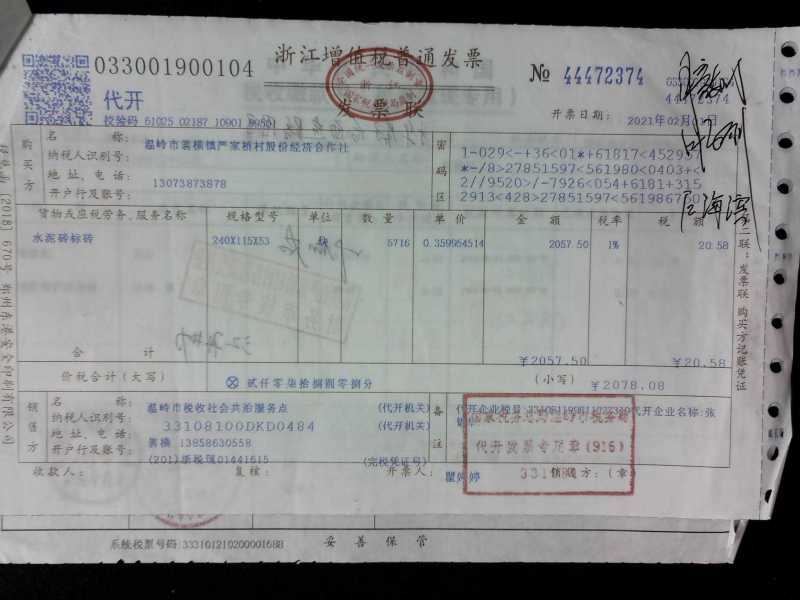 浙江增值税普通发票
033001900104
№ 44472374
44472374
代开
发票联
开票日期：
校验码 61025 02187 10901
购买方
名称：
温岭市箬横镇严家桥村股份经济合作社
纳税人识别号：
地址、电话：
13073873878
开户行及账号：
密码区
1-029<-+36<01*+61817<45295
*-/8>27851597<561980<0403+<
2//9520>/-7926<054+6181+315
2913<428>27851597<56198676
货物或应税劳务、服务名称 规格型号 单位 数量 单价 金额 税率 税额
水泥砖标砖 240X115X53 5716 0.359954514 2057.50 1% 20.58
合计 ￥2057.50 ￥20.58
价税合计（大写） 贰仟零柒拾捌圆零捌分 （小写） ￥2078.08
销售方
名称：
温岭市税收社会共治服务点 （代开机关）
纳税人识别号：
33108100DKD0484 （代开机关）
地址、电话：
箬横 13858630558
开户行及账号：
01441615 （完税凭证号）
备注
代开企业税号
代开企业名称:张
代开发票专用章(916)
收款人： 复核： 开票人： 瞿婷婷 销售方：（章）
第二联：发票联 购买方记账凭证
系统税票号码:
妥善保管